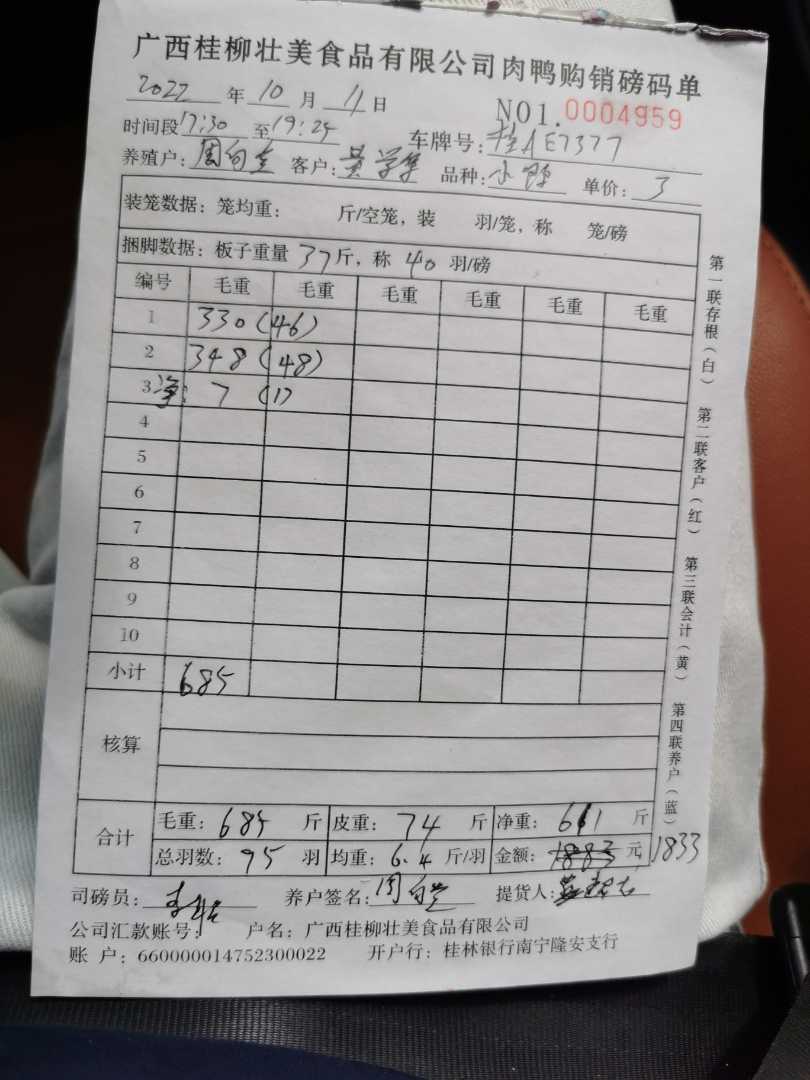 广西桂柳壮美食品有限公司肉鸭购销磅码单
2022 年 10 月 11 日 NO1. 0004959
时间段 17:30 至 19:25 车牌号: 桂AE7377
养殖户: 周 客户: 黄 品种: 小 单价: 3
装笼数据: 笼均重: 斤/空笼, 装 羽/笼, 称 笼/磅
捆脚数据: 板子重量 37 斤, 称 40 羽/磅
编号 毛重 毛重 毛重 毛重 毛重 毛重
1 330 (46)
2 348 (48)
3 净: 7 (1)
4
5
6
7
8
9
10
小计 685
核算
合计 毛重: 685 斤 皮重: 74 斤 净重: 611 斤
总羽数: 95 羽 均重: 6.4 斤/羽 金额: 1883 元 1833
司磅员: 养户签名: 周 提货人:
公司汇款账号: 户名: 广西桂柳壮美食品有限公司
账 户: 660000014752300022 开户行: 桂林银行南宁隆安支行
第一联存根(白) 第二联客户(红) 第三联会计(黄) 第四联养户(蓝)